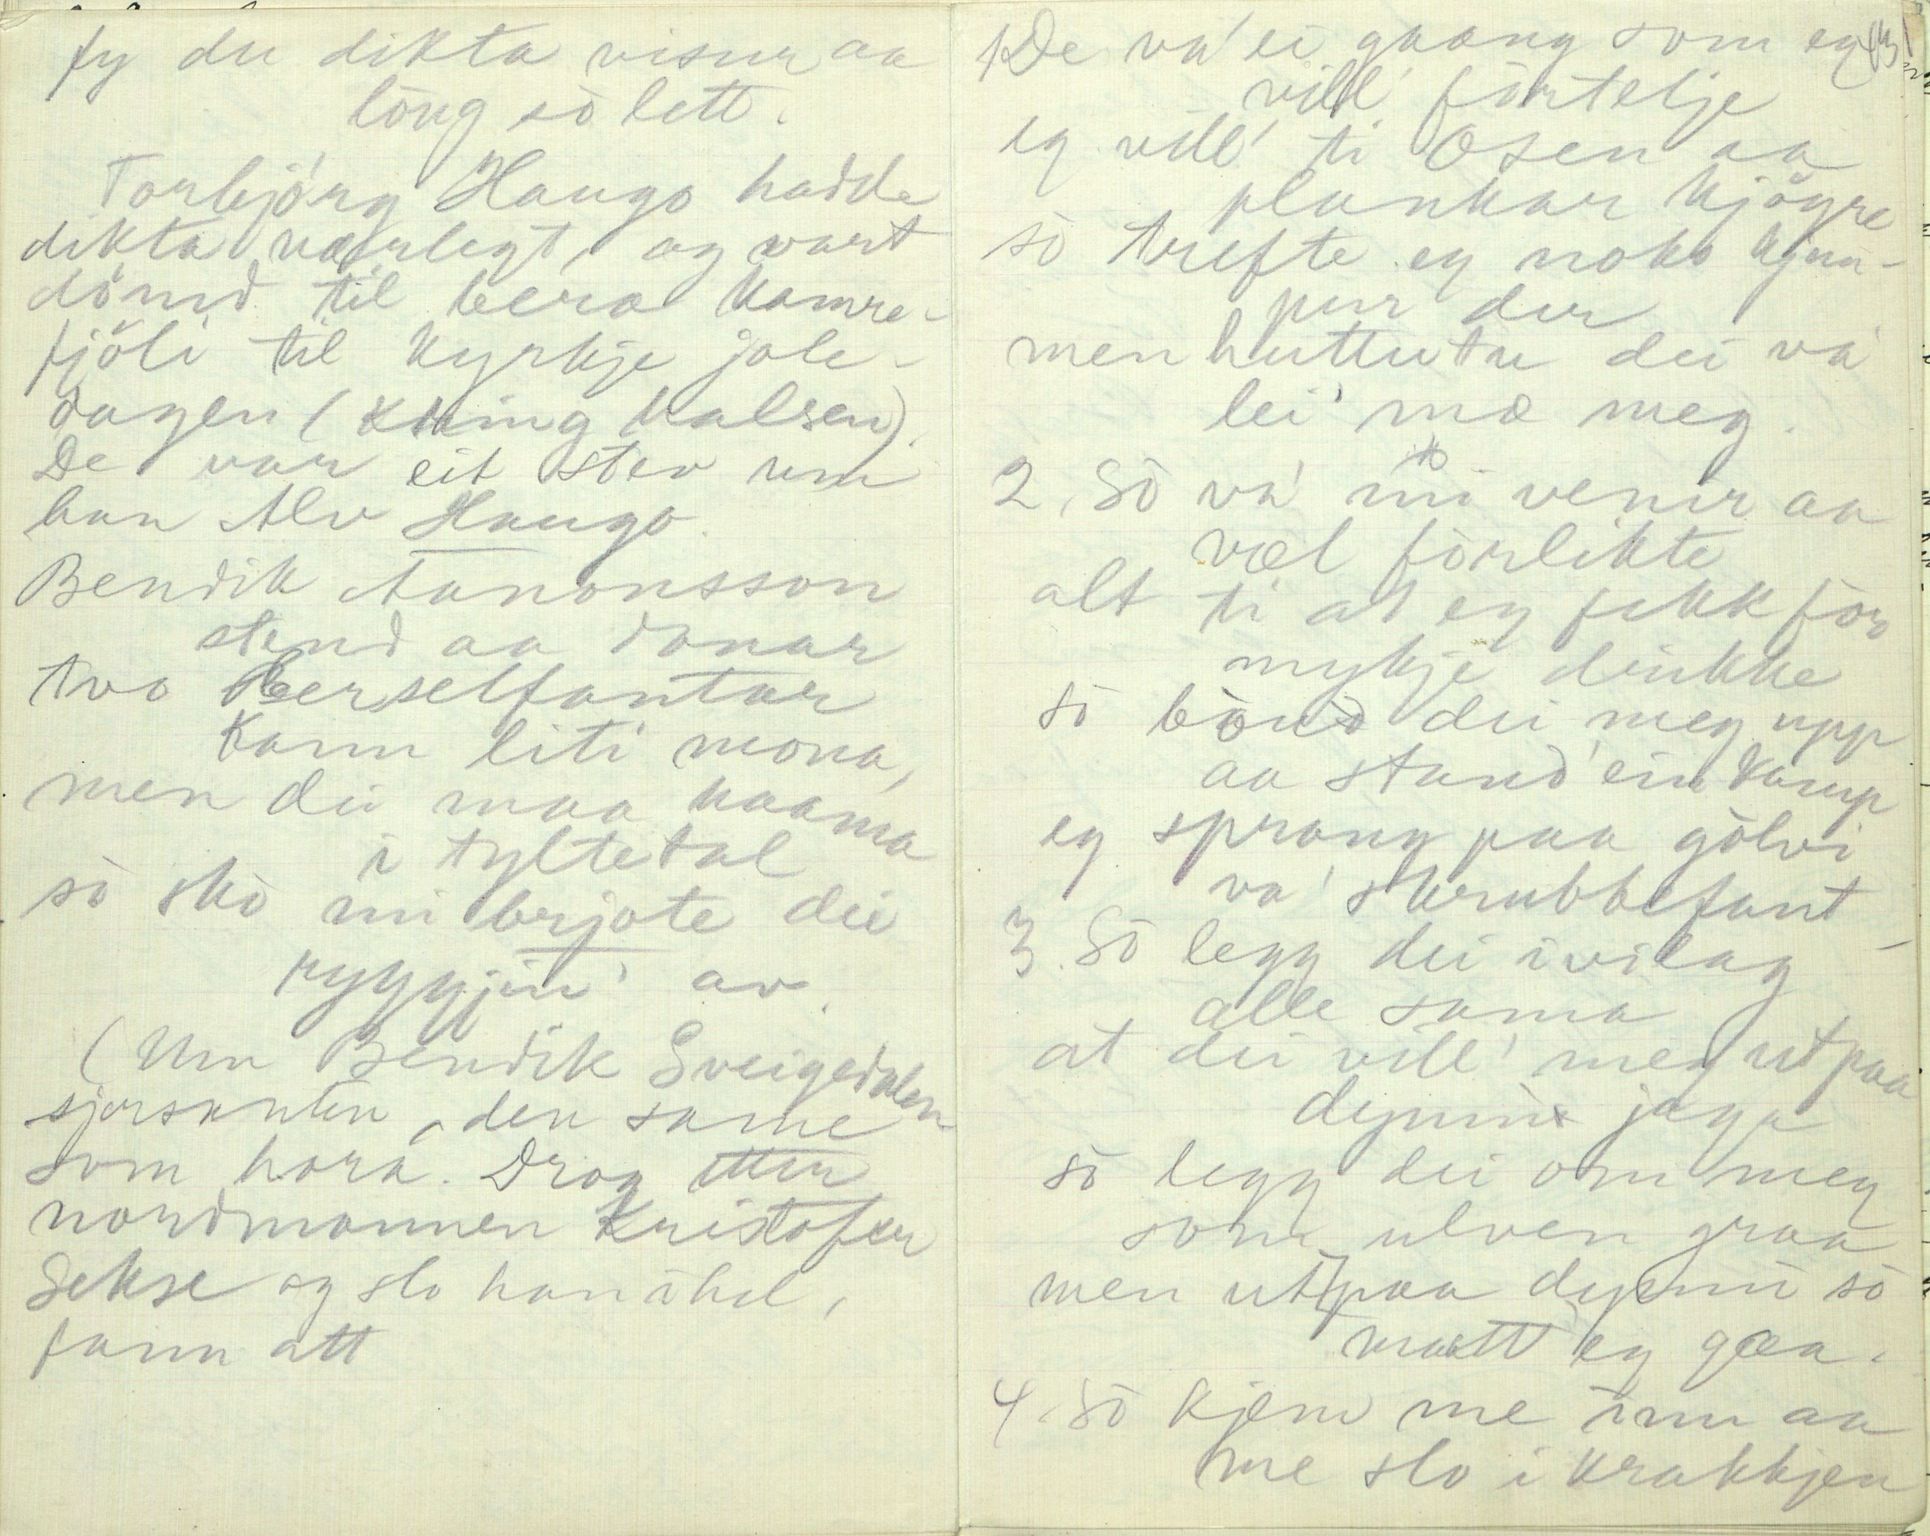 fy du dikta visur aa
löng sò lett.
Torbjörg Haugo hadde
dikta værlegt, og vart
dömd til bera kamre-
fjöli til kyrkje jole-
dagen (kring halsen).
De var eit stev um
han Alv Haugo.
Bendik Aanonsson
stend aa donar
tvo berselfantar
kann liti mona,
men dei maa kaama
i tyltetal
sò skò mi brjote dei
ryggjin' av.
(Um Bendik Sveigedalen
den same
som hora. Drog
nordmannen Kristofer
Sekse og slo han ihel,
fann att
1 De va' ei gaang som eg
vill' förtelje
eg vill' ti Osen aa
plankar kjögre
sò trefte eg noko kjæm-
pur der
men huttutu dei va'
lei' mæ meg.
2. Sò va' mi venir aa
væl förlikte
alt ti at eg fekk för
mykje drikke
sò bònd dei meg upp
aa stand' ein kamp
eg sprang paa gòlvi
va' skrubbefant
3. Sò legg dei i vilag
alle sama
at dei vill' meg ut paa
dynni jaga
sò legg dei om meg
som ulven graa
men ut paa dynni sò
matt eg gaa.
4. Sò kjem me inn aa
me slo i krakkjen